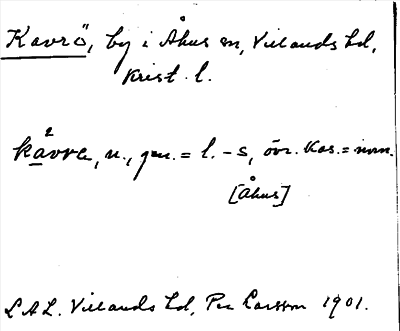 Kavrö, by i Åhus sn, Villands hd,
Krist. l.
kavra, n., gen. = l. -s, övr. kas. = nom.
[Åhus]
LAL. Villands hd, Per Larsson 1901.